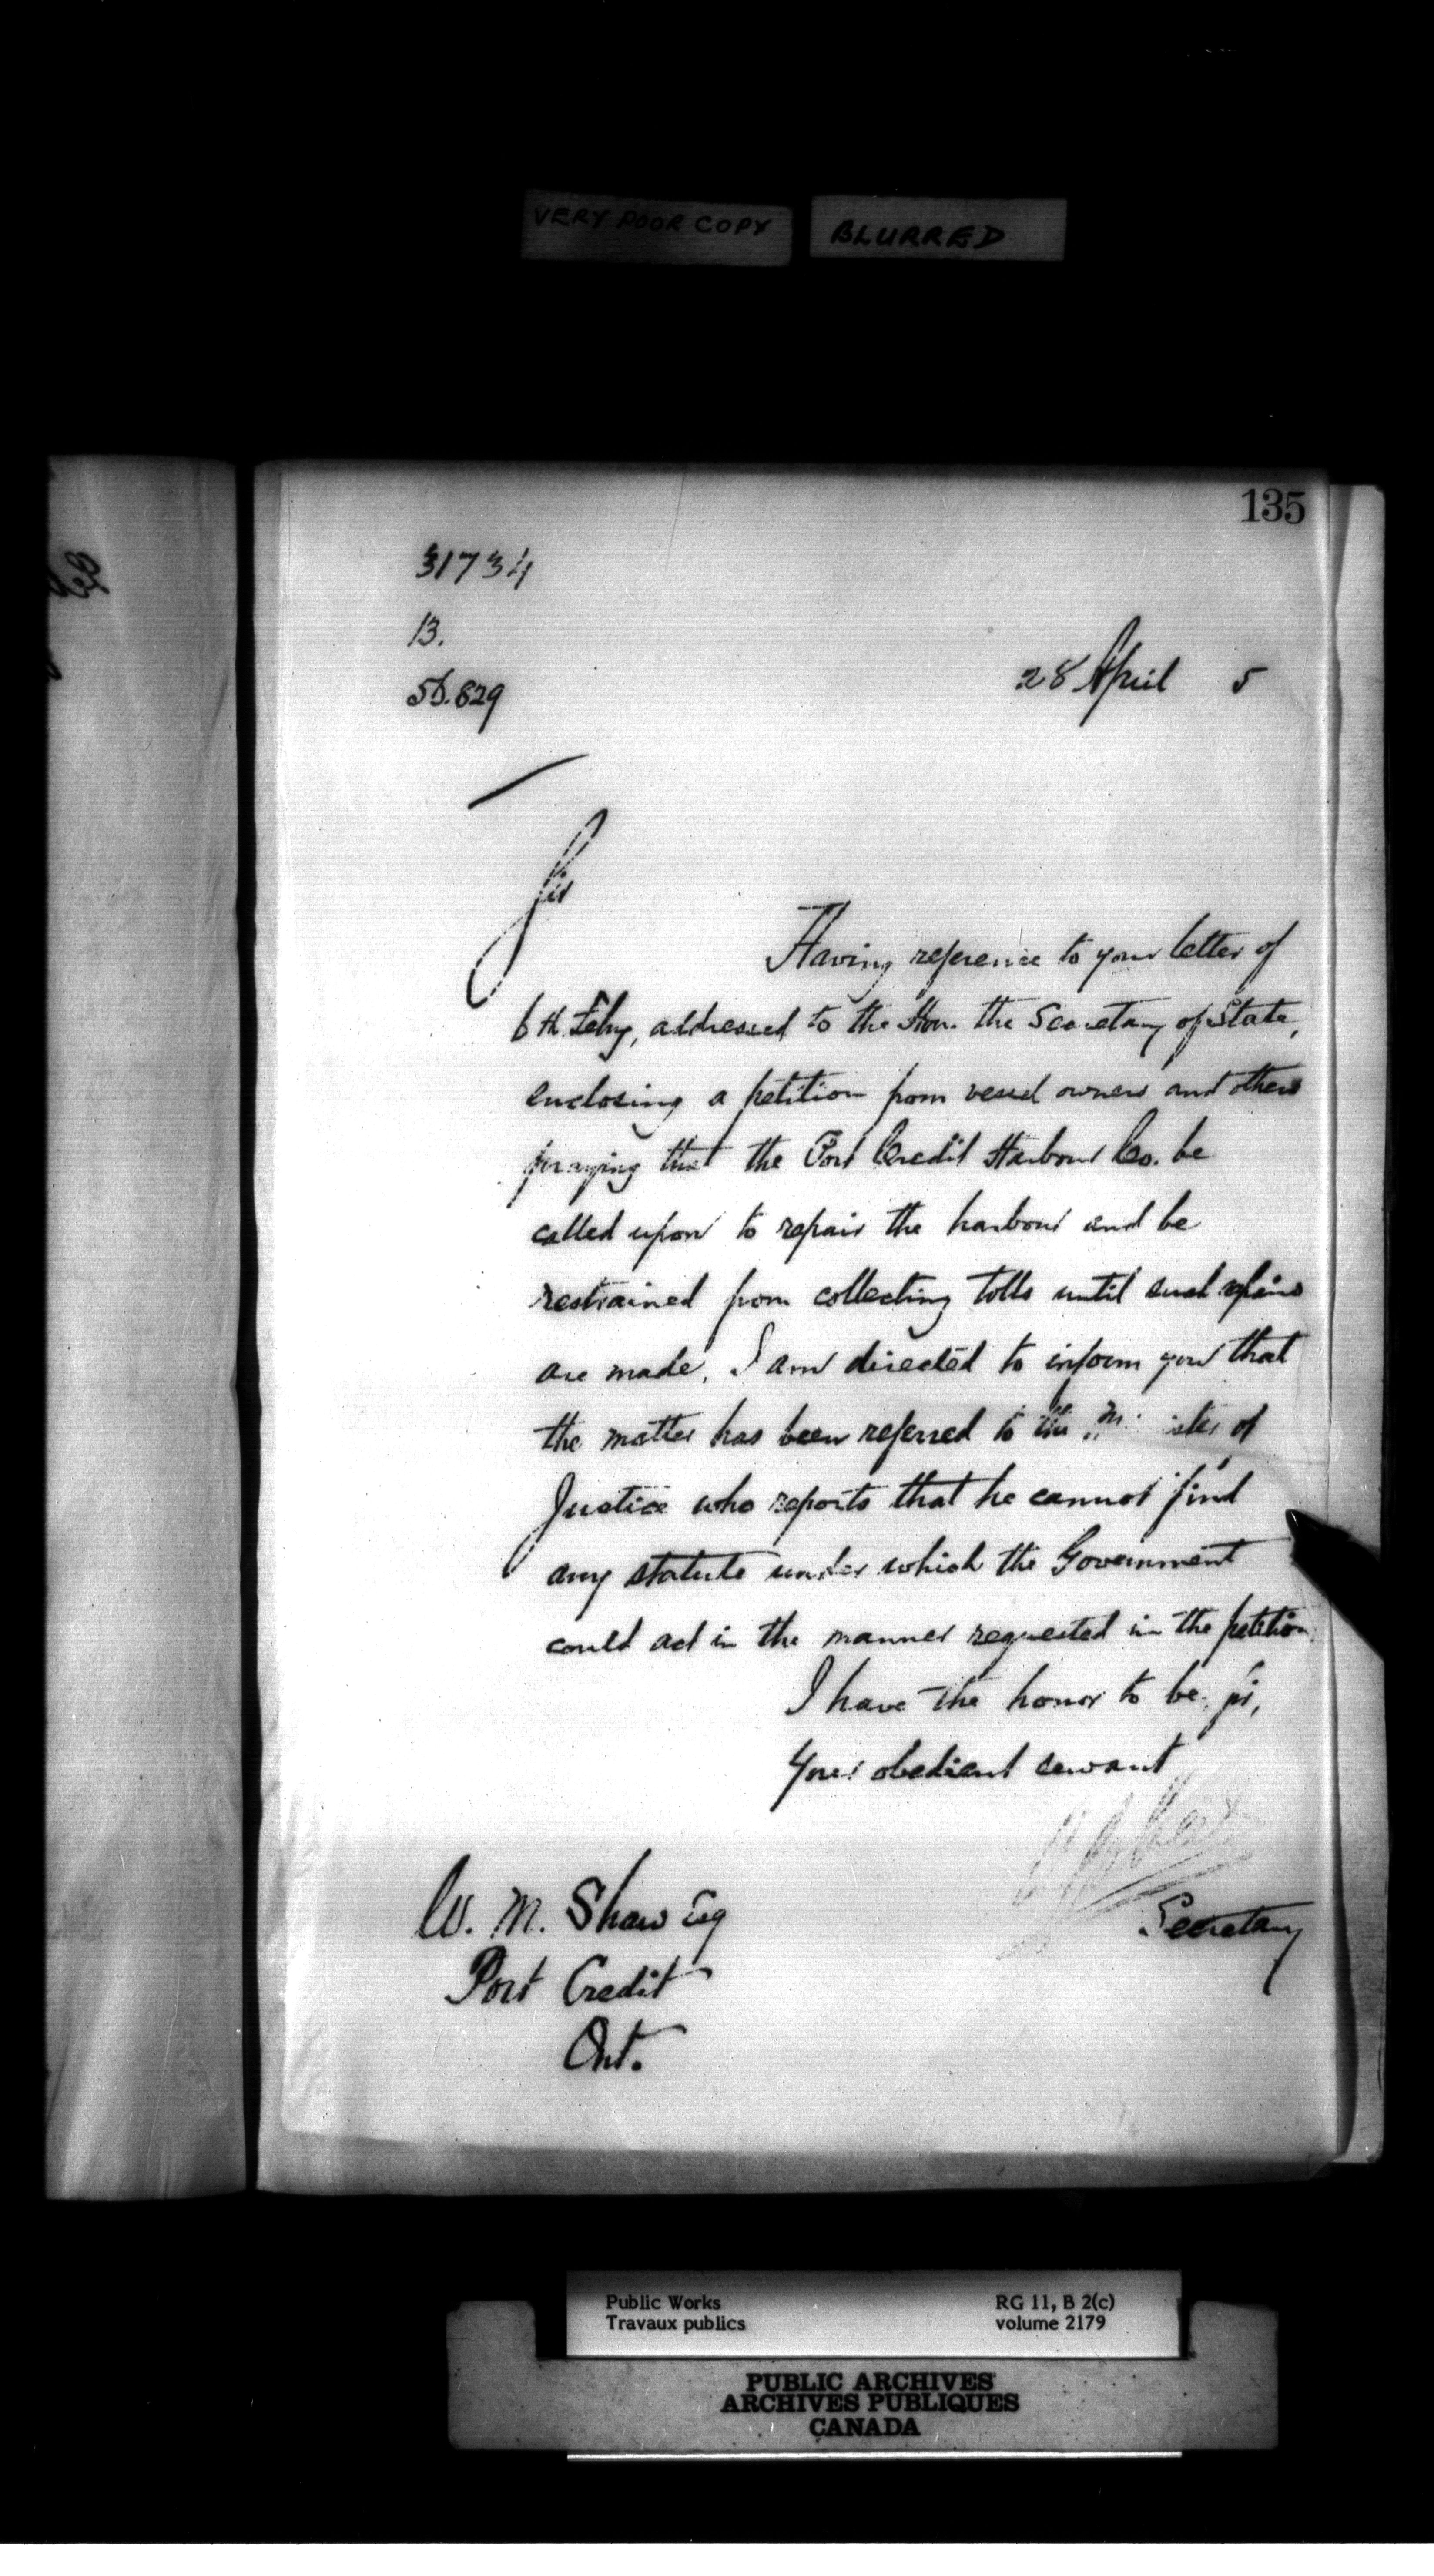 VERY POOR COPY BLURRED
135
31734
13.
56.829
28 April 5
Sir
Having reference to your letter of
6th. Feby, addressed to the Hon. the Secretary of State,
enclosing a petition from vessel owners and others
praying that the Port Credit Harbour Co. be
called upon to repair the harbour and be
restrained from collecting tolls until such repairs
are made, I am directed to inform you that
the matter has been referred to the Minister of
Justice who reports that he cannot find
any statute under which the Government
could act in the manner requested in the petition.
I have the honor to be, Sir,
Your obedient servant
Secretary
W. M. Shaw Esq
Port Credit
Ont.
Public Works RG 11, B 2(c)
Travaux publics volume 2179
PUBLIC ARCHIVES
ARCHIVES PUBLIQUES
CANADA